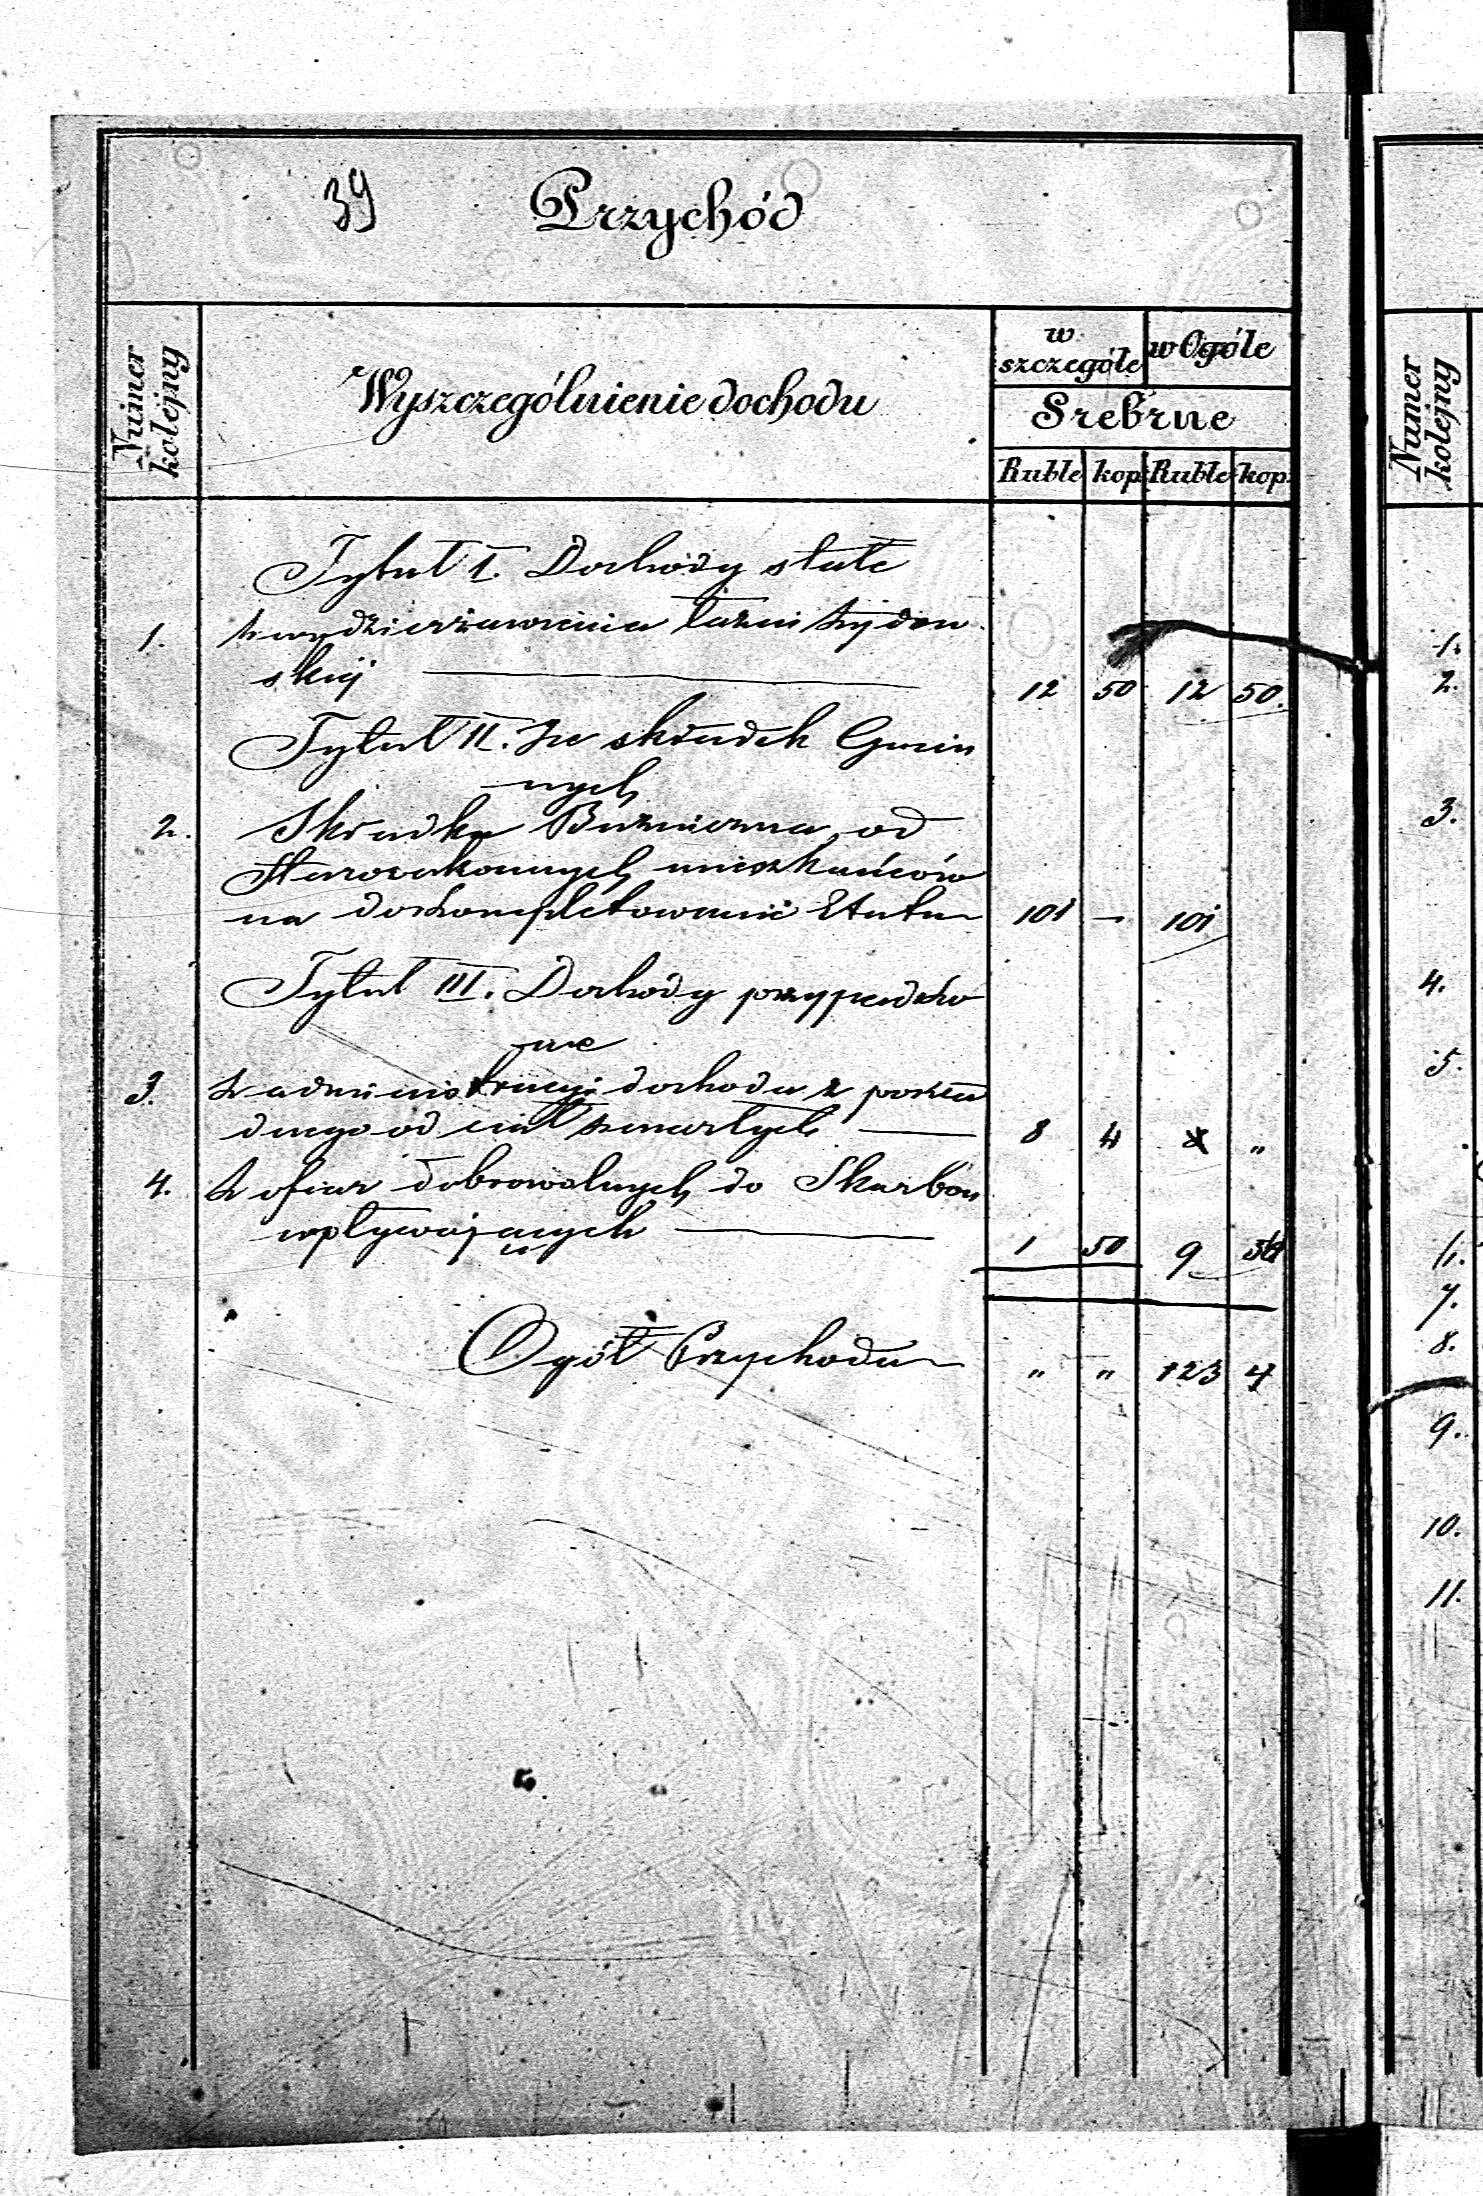 39 Przychód
Numer kolejny
Wyszczególnienie dochodu
w szczególe
w Ogóle
Srebrne
Ruble kop. Ruble kop.
Tytuł I. Dochody stałe
1. z wydzierżawienia łaźni żydow
skiej 12 50 12 50.
Tytuł II. Ze składek Gmin
nych
2. Składka Bużniczna od
Starozakonnych mieszkańców
na doskompletowanie Etatu 101 — 101
Tytuł III. Dochody przypadko
we
3. z administracyi dochodu z pokła
dnego od ciał zmarłych 8 4 „
4. z ofiar dobrowolnych do Skarbon
wpływających 1 50 9 54
Ogół Przychodu „ „ 123 4
Numer kolejny
1.
2.
3.
4.
5.
6.
7.
8.
9.
10.
11.